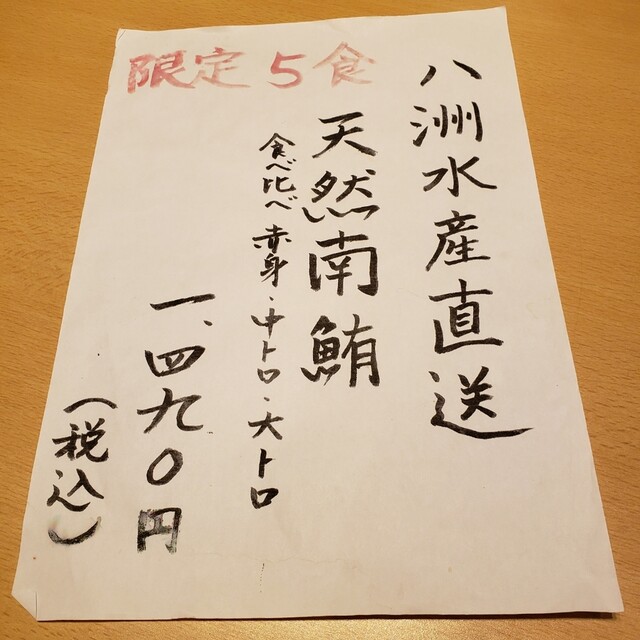 限定5食
八洲水産直送
天然南鮪
食べ比べ 赤身・中トロ・大トロ
一、四九〇円
(税込)